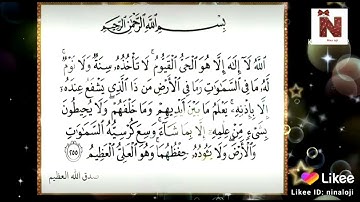 بِسْمِ اللَّهِ الرَّحْمَٰنِ الرَّحِيمِ
اللَّهُ لَا إِلَٰهَ إِلَّا هُوَ الْحَيُّ الْقَيُّومُ ۚ لَا تَأْخُذُهُ سِنَةٌ وَلَا نَوْمٌ ۚ
لَهُ مَا فِي السَّمَاوَاتِ وَمَا فِي الْأَرْضِ ۗ مَن ذَا الَّذِي يَشْفَعُ عِندَهُ
إِلَّا بِإِذْنِهِ ۚ يَعْلَمُ مَا بَيْنَ أَيْدِيهِمْ وَمَا خَلْفَهُمْ ۖ وَلَا يُحِيطُونَ
بِشَيْءٍ مِّنْ عِلْمِهِ إِلَّا بِمَا شَاءَ ۚ وَسِعَ كُرْسِيُّهُ السَّمَاوَاتِ
وَالْأَرْضَ ۖ وَلَا يَئُودُهُ حِفْظُهُمَا ۚ وَهُوَ الْعَلِيُّ الْعَظِيمُ ﴿٢٥٥﴾
صدق الله العظيم
N
Likee
Likee ID: ninaloji